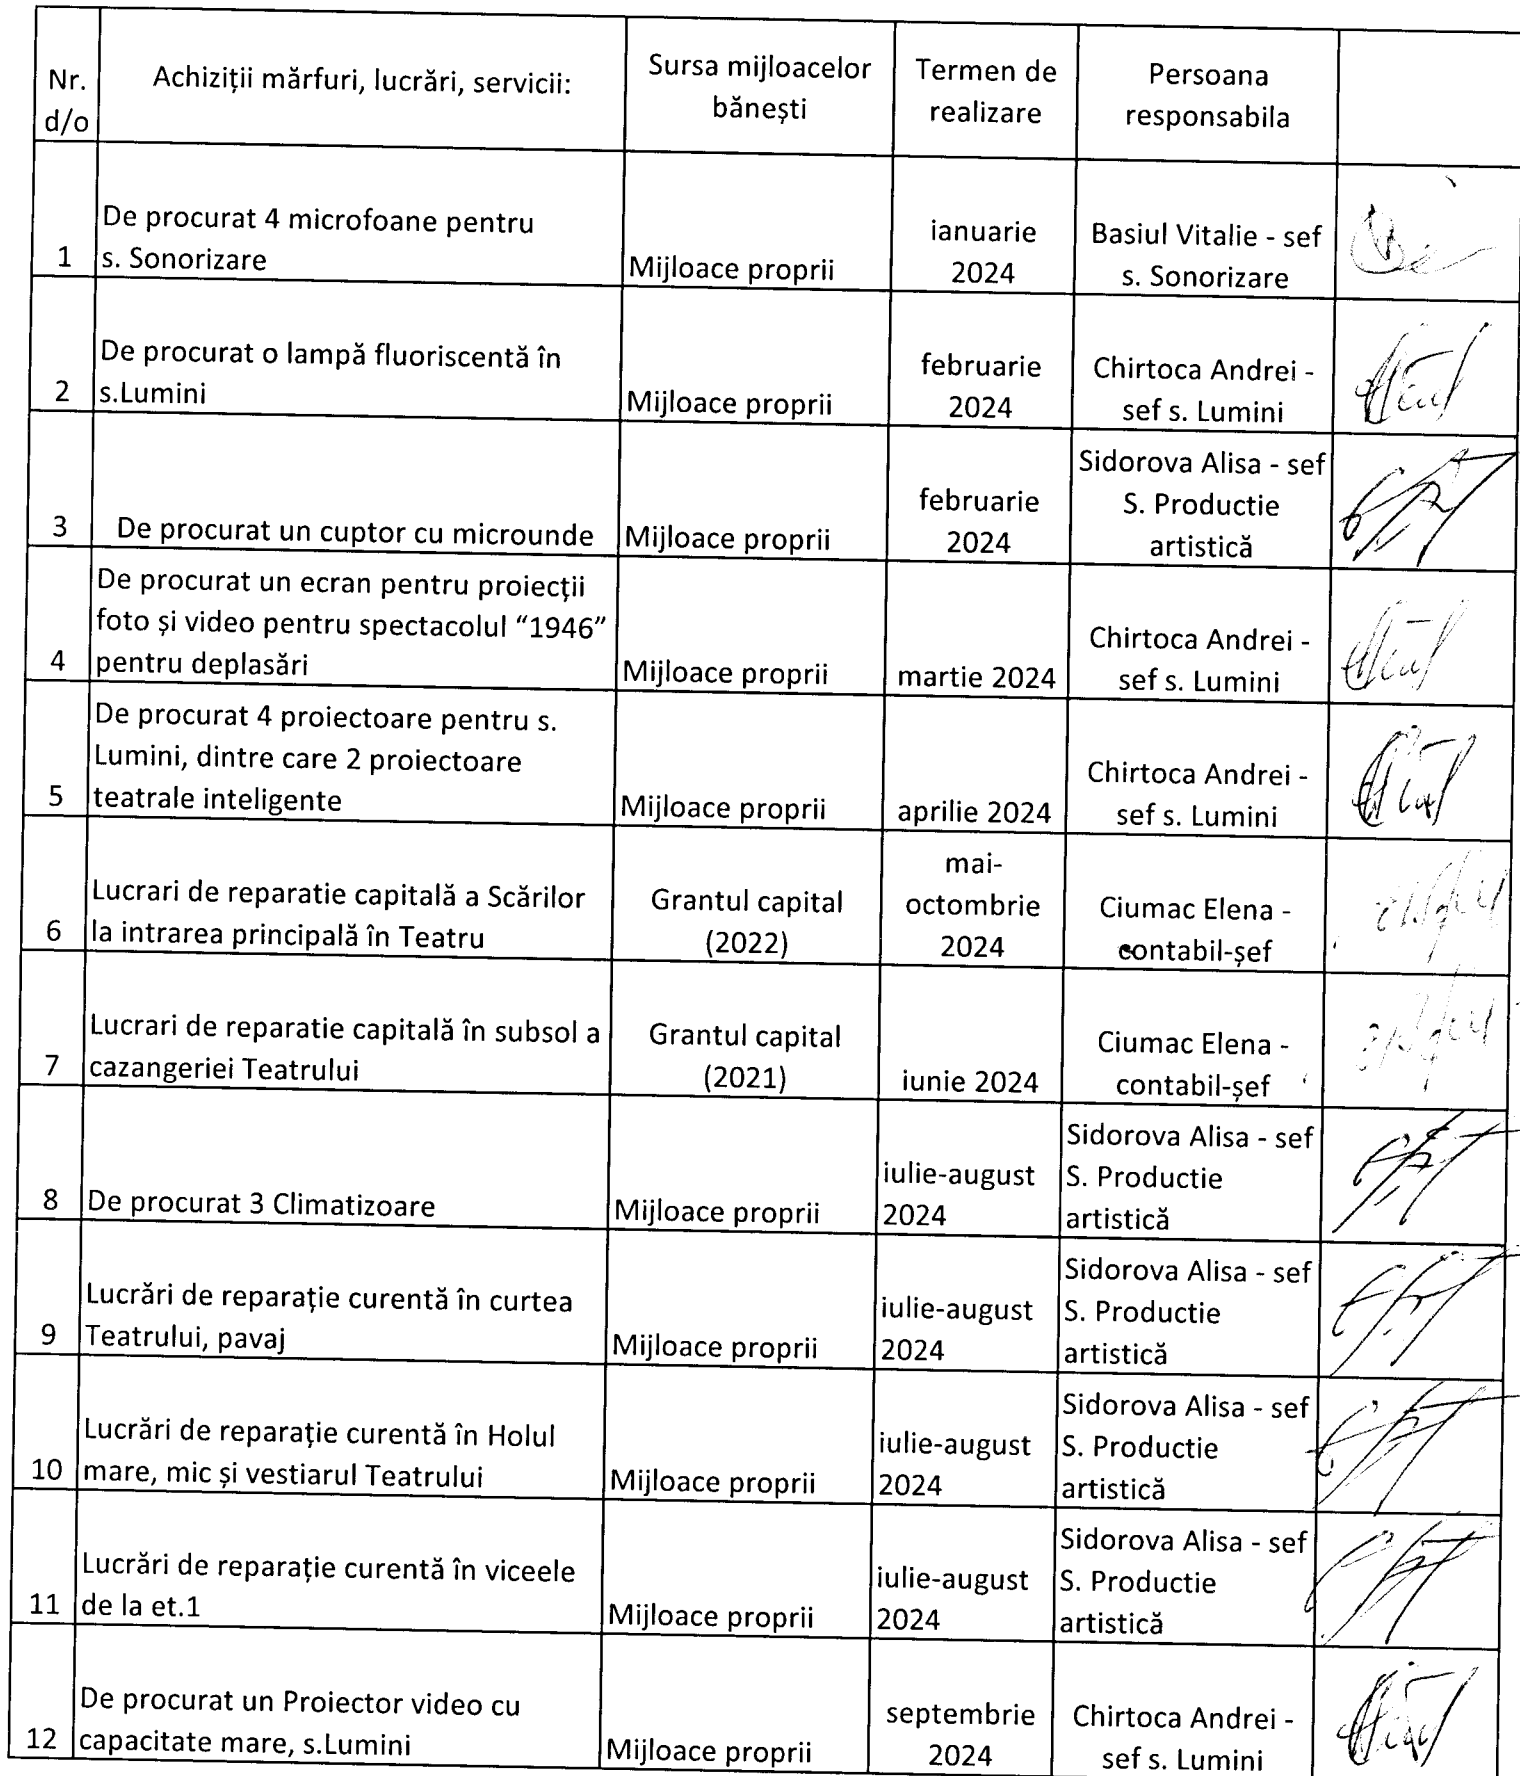 Nr.
d/o
Achiziții mărfuri, lucrări, servicii:
Sursa mijloacelor
bănești
Termen de
realizare
Persoana
responsabila
1
De procurat 4 microfoane pentru
s. Sonorizare
Mijloace proprii
ianuarie
2024
Basiul Vitalie - sef
s. Sonorizare
2
De procurat o lampă fluoriscentă în
s.Lumini
Mijloace proprii
februarie
2024
Chirtoca Andrei -
sef s. Lumini
3
De procurat un cuptor cu microunde
Mijloace proprii
februarie
2024
Sidorova Alisa - sef
S. Productie
artistică
4
De procurat un ecran pentru proiecții
foto și video pentru spectacolul “1946”
pentru deplasări
Mijloace proprii
martie 2024
Chirtoca Andrei -
sef s. Lumini
5
De procurat 4 proiectoare pentru s.
Lumini, dintre care 2 proiectoare
teatrale inteligente
Mijloace proprii
aprilie 2024
Chirtoca Andrei -
sef s. Lumini
6
Lucrari de reparatie capitală a Scărilor
la intrarea principală în Teatru
Grantul capital
(2022)
mai-
octombrie
2024
Ciumac Elena -
contabil-șef
7
Lucrari de reparatie capitală în subsol a
cazangeriei Teatrului
Grantul capital
(2021)
iunie 2024
Ciumac Elena -
contabil-șef
8
De procurat 3 Climatizoare
Mijloace proprii
iulie-august
2024
Sidorova Alisa - sef
S. Productie
artistică
9
Lucrări de reparație curentă în curtea
Teatrului, pavaj
Mijloace proprii
iulie-august
2024
Sidorova Alisa - sef
S. Productie
artistică
10
Lucrări de reparație curentă în Holul
mare, mic și vestiarul Teatrului
Mijloace proprii
iulie-august
2024
Sidorova Alisa - sef
S. Productie
artistică
11
Lucrări de reparație curentă în viceele
de la et.1
Mijloace proprii
iulie-august
2024
Sidorova Alisa - sef
S. Productie
artistică
12
De procurat un Proiector video cu
capacitate mare, s.Lumini
Mijloace proprii
septembrie
2024
Chirtoca Andrei -
sef s. Lumini